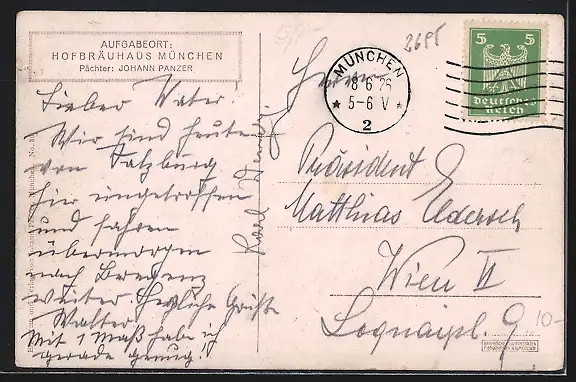 AUFGABEORT:
HOFBRÄUHAUS MÜNCHEN
Pächter: JOHANN PANZER
Lieber Vater!
Wir sind heute
von Salzburg
hier eingetroffen
und fahren
übermorgen
nach Bregenz
weiter. Herzliche Grüße
Walter
Mit 1 Maß habe ich
gerade genug!
MÜNCHEN
18 6 26
5-6 V
2
5 5
Deutsches
Reich
Herrn
Präsident
Matthias Eldersch
Wien II
9
10-